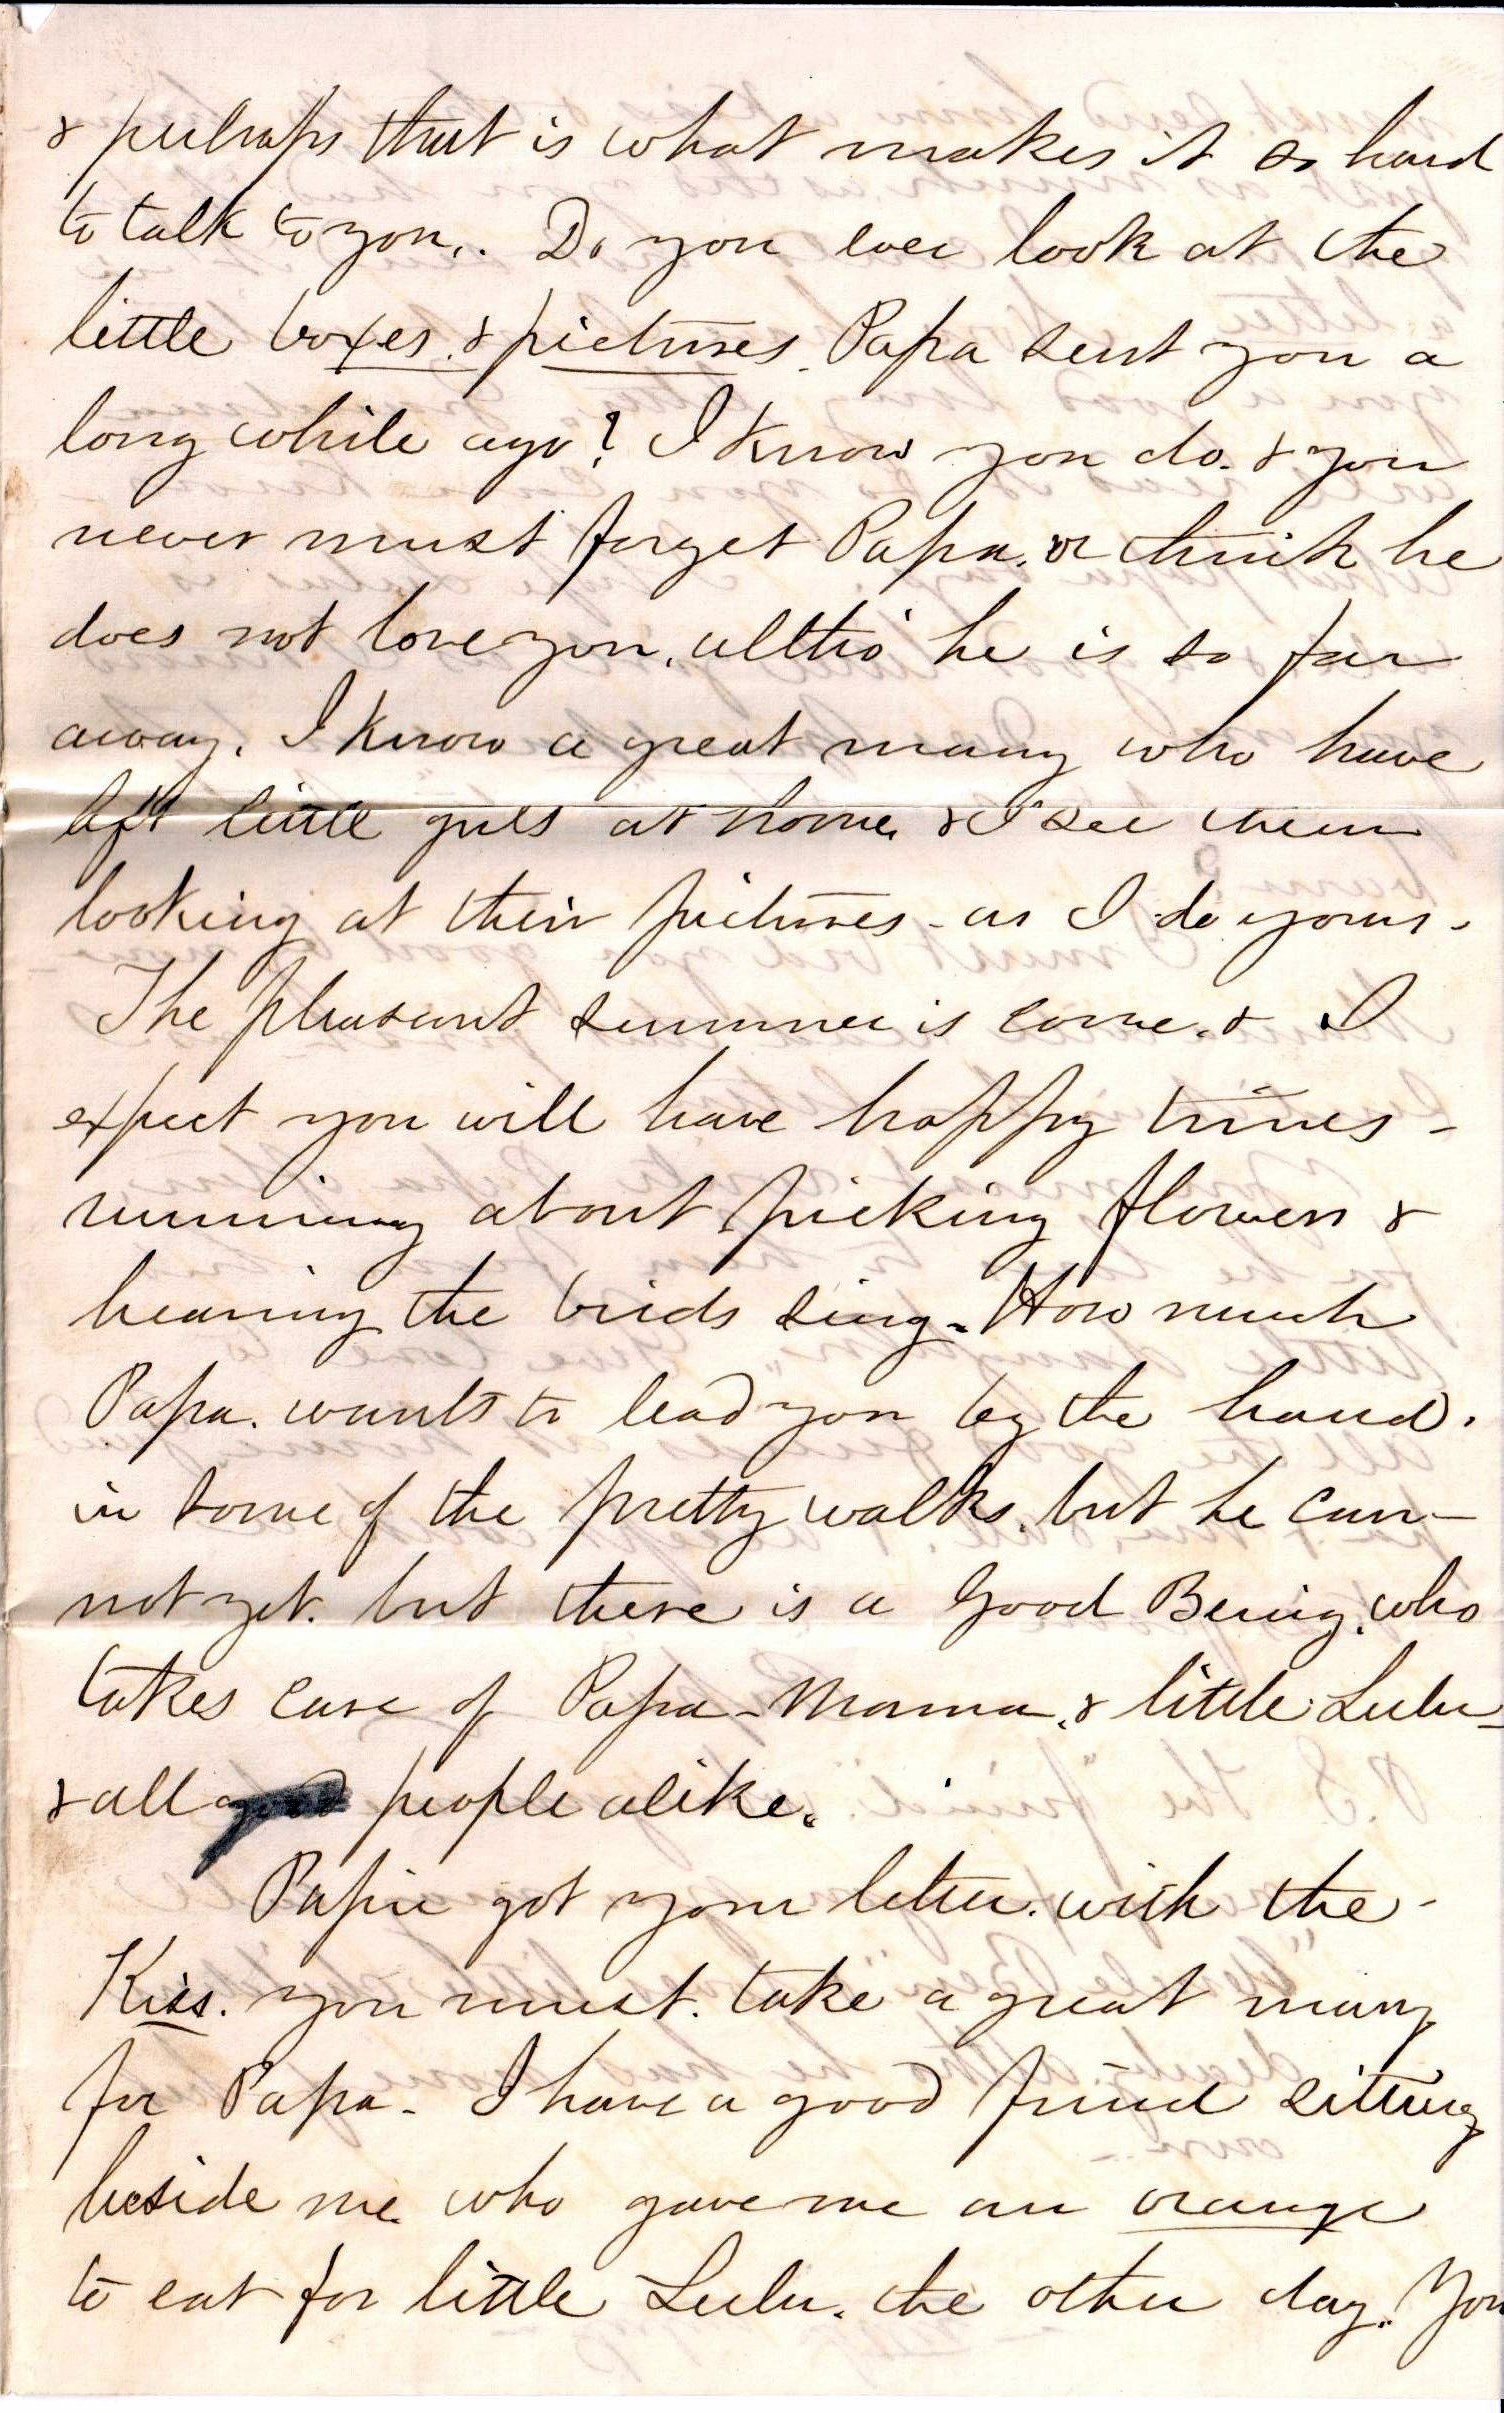 & perhaps that is what makes it so hard
to talk to you.. Do you ever look at the
little boxes & pictures. Papa sent you a
long while ago? I know you do. & you
never must forget Papa. or think he
does not love you, altho' he is so far
away. I know a great many who have
left little girls at home. & I see them
looking at their pictures - as I do yours.
The pleasant summer is come. & I
expect you will have happy times -
running about picking flowers &
hearing the birds sing - How much
Papa. wants to lead you by the hand.
in some of the pretty walks. but he can-
not yet. but there is a Good Being. who
takes care of Papa - Mama. & little Lulu -
& all good people alike.
Papie got your letter. with the -
Kiss. you must. take a great many
for Papa - I have a good friend sitting
beside me. who gave me an orange
to eat for little Lulu. the other day. You